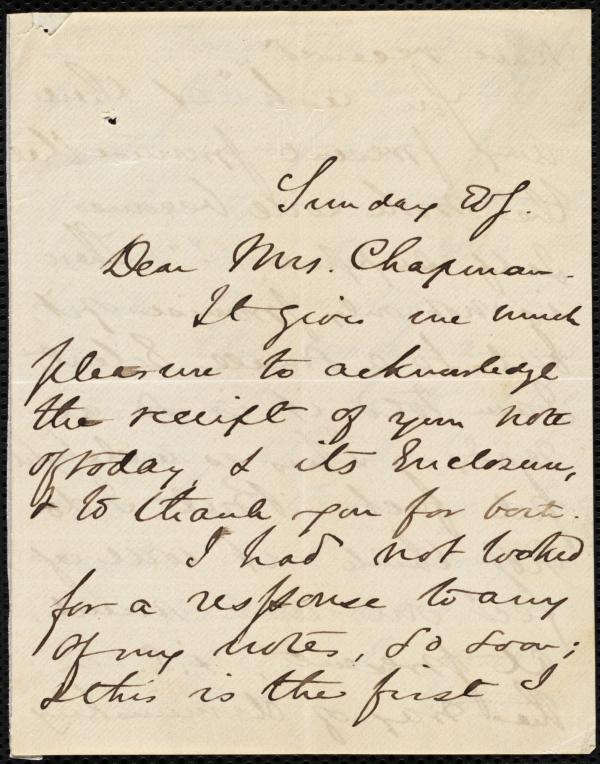 Sunday Ev'g.
Dear Mrs. Chapman.
It gives me much
pleasure to acknowledge
the receipt of your note
of today, & its Enclosure,
& to thank you for both.
I had not looked
for a response to any
of my notes, so soon;
& this is the first I